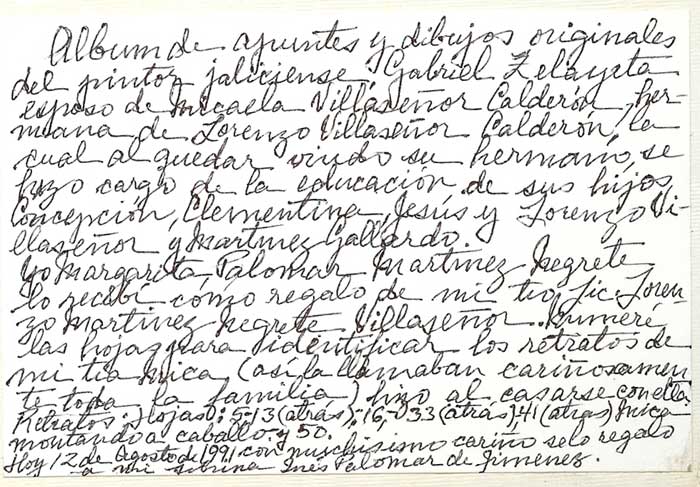 Album de apuntes y dibujos originales
del pintor jaliciense, Gabriel Zelayeta
esposo de Micaela Villaseñor Calderón, her-
mana de Lorenzo Villaseñor Calderón, la
cual al quedar viudo su hermano, se
hizo cargo de la educación de sus hijos,
Concepción, Clementina, Jesús y Lorenzo Vi-
llaseñor y Martinez Gallardo.
Yo Margarita Palomar Martinez Negrete
lo recibí como regalo de mi tio, Lic. Loren-
zo Martinez Negrete Villaseñor. Numeré
las hojas para identificar los retratos de
mi tia Mica (así la llamaban cariñosamen-
te toda la familia) hizo al casarse con ella
Retratos: Hojas: 5-13 (atrás)-16,-33 (atrás) 41 (atras) Mica
montando a caballo y 50.
Hoy 12 de Agosto de 1991 con muchisimo cariño, se lo regalo
a mi sobrina Inés Palomar de Jimenez.